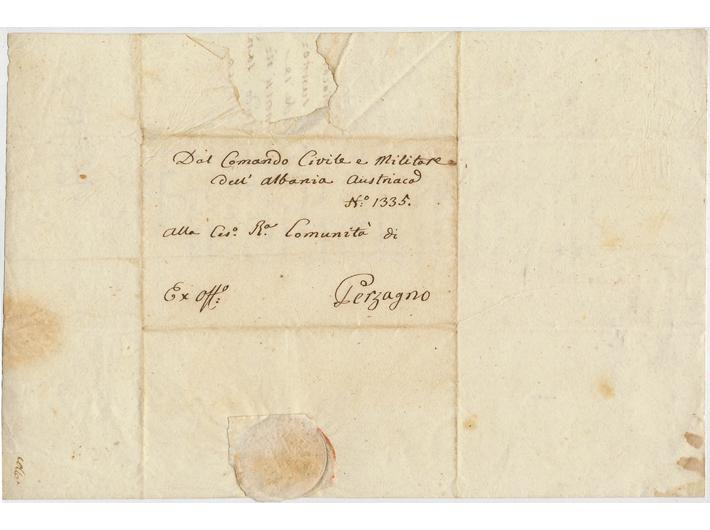 Dal Comando Civile e Militare
dell' Albania Austriaca
N.º 1335.
Alla Ces.º R.ª Comunità di
Ex Off.º
Perzagno